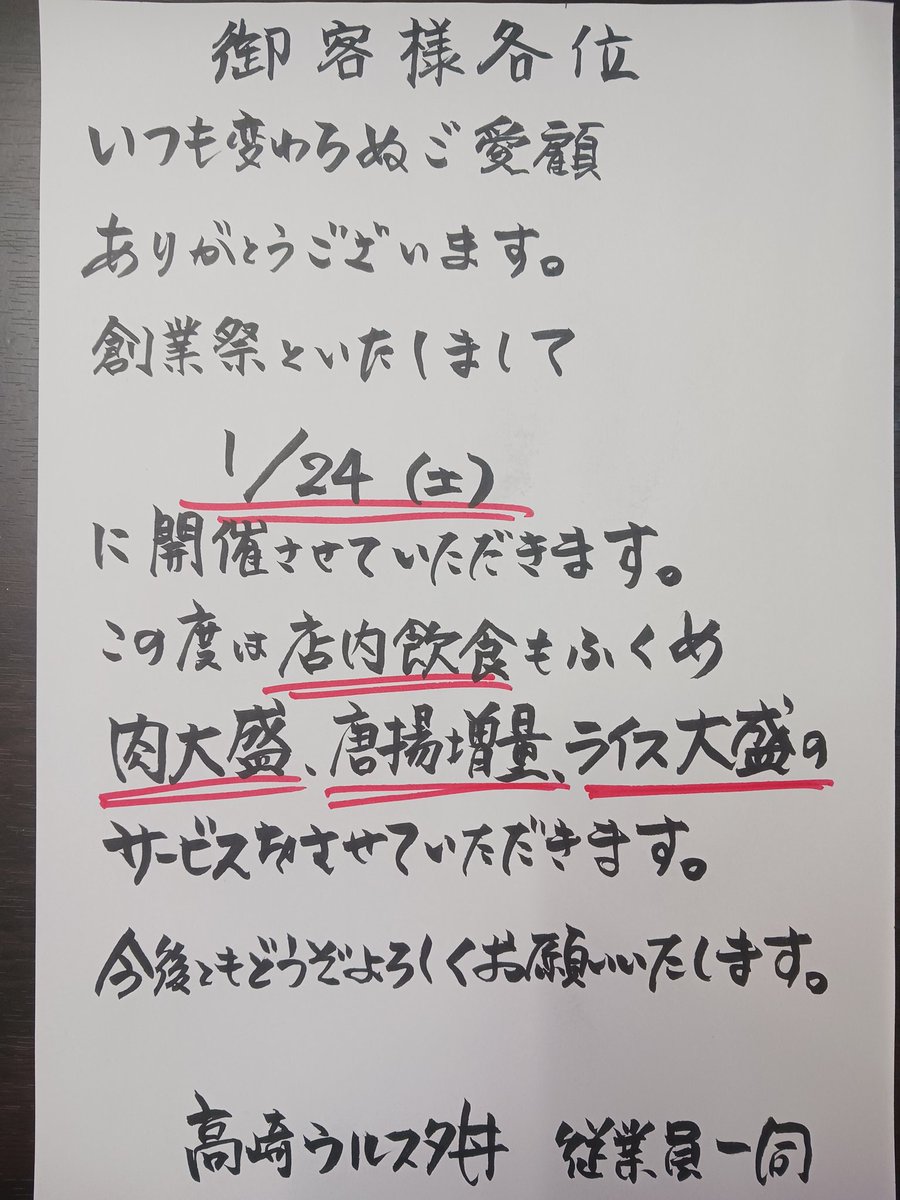 御客様各位
いつも変わらぬご愛顧
ありがとうございます。
創業祭といたしまして
1/24 (土)
に開催させていただきます。
この度は店内飲食もふくめ
肉大盛、唐揚増量、ライス大盛の
サービスをさせていただきます。
今後ともどうぞよろしくお願いいたします。
高崎ウルスタ丼 従業員一同